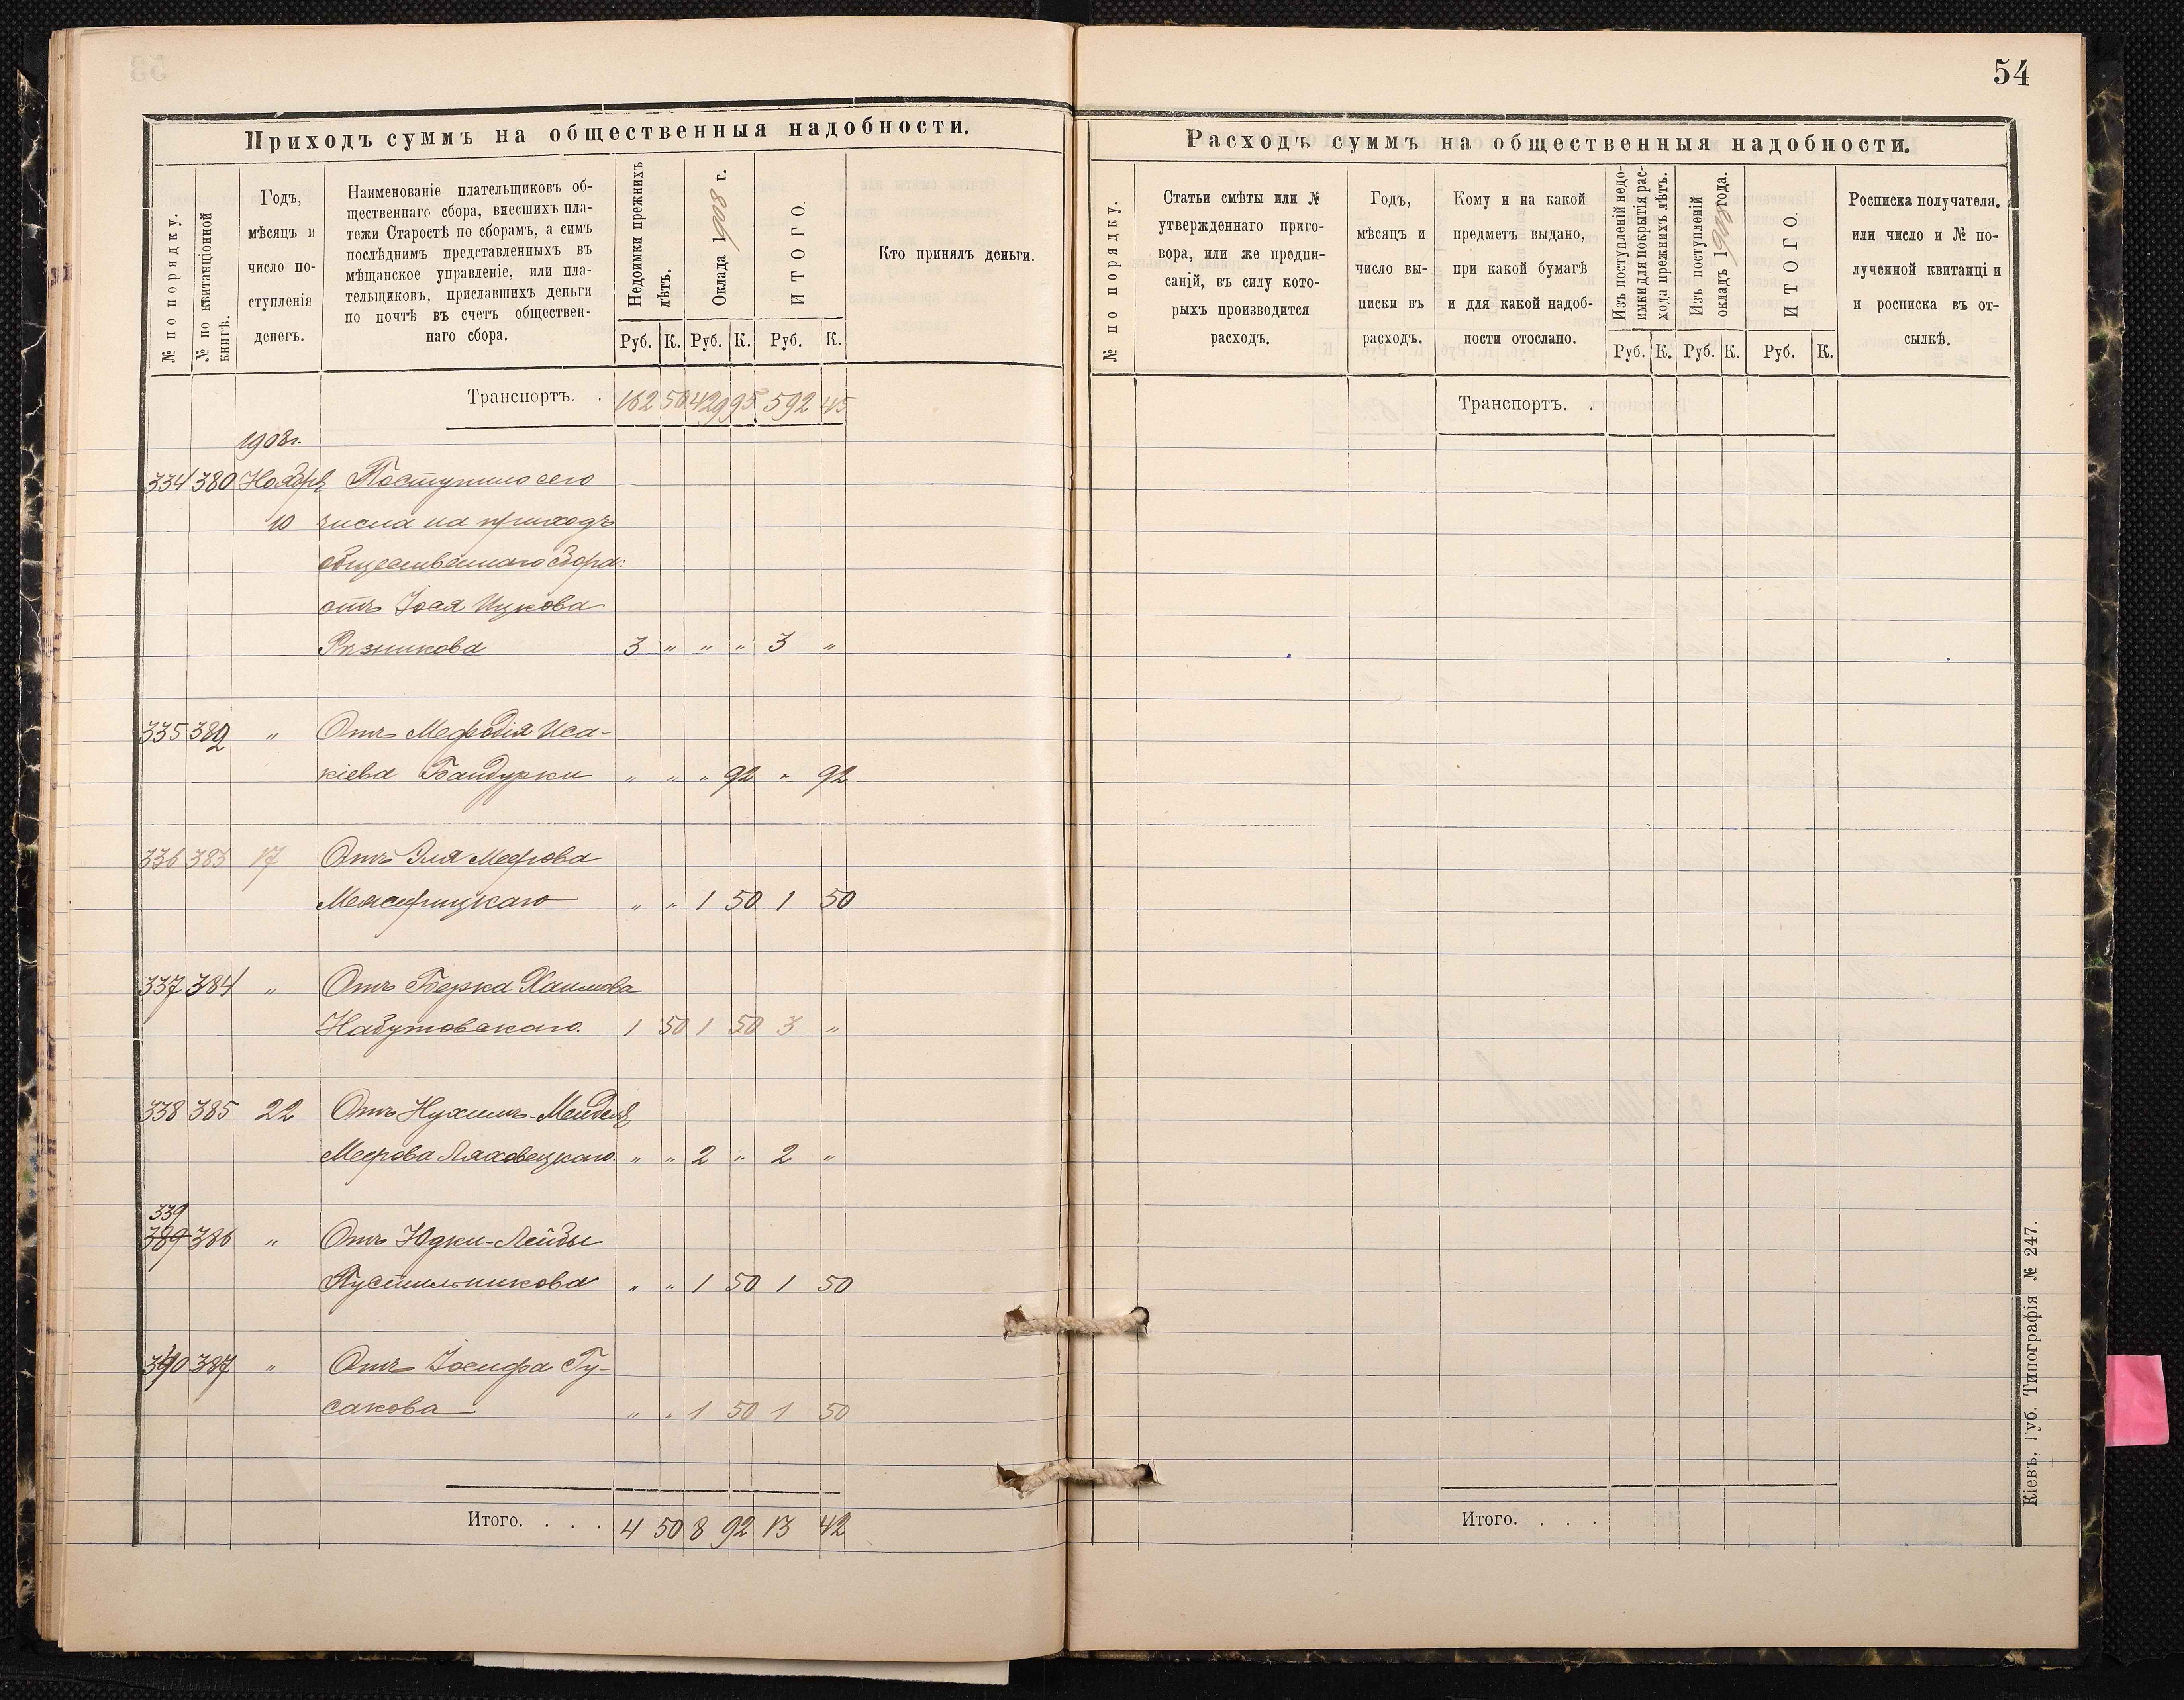 54
Приходъ суммъ на общественныя надобности.
№ по порядку.
№ по квитанціонной книгѣ.
Годъ,
мѣсяцъ и
число по-
ступленія
денегъ.
Наименованіе плательщиковъ об-
щественнаго сбора, внесшихъ пла-
тежи Старостѣ по сборамъ, а симъ
послѣднимъ представленныхъ въ
мѣщанское управленіе, или пла-
тельщиковъ, приславшихъ деньги
по почтѣ въ счетъ обществен-
наго сбора.
Недоимки прежнихъ
лѣтъ.
Оклада 1908 г.
ИТОГО.
Руб. К. Руб. К. Руб. К.
Кто принялъ деньги.
Транспортъ. . 162 50 429 95 592 45
1908 г.
334 380 Ноября Поступило сего
10 числа на приходъ
общественнаго сбора:
отъ Іося Ицкова
Рѣзникова 3 " " " 3 "
335 382 " Отъ Мефодія Иса-
кіева Бандурки " " " 92 " 92
336 383 17 Отъ Эля Меерова
Межирицкаго " " 1 50 1 50
337 384 " Отъ Берка Хаимова
Набутовскаго. 1 50 1 50 3 "
338 385 22 Отъ Нухимъ-Менделя
Меерова Ляховецкаго. " " 2 " 2 "
339
389 386 " Отъ Юдки-Лейбы
Пустильникова " " 1 50 1 50
340 387 " Отъ Іосифа Гу-
сакова " " 1 50 1 50
Итого. . . . 4 50 8 92 13 42
Расходъ суммъ на общественныя надобности.
№ по порядку.
Статьи смѣты или №
утвержденнаго приго-
вора, или же предпи-
саній, въ силу кото-
рыхъ производится
расходъ.
Годъ,
мѣсяцъ и
число вы-
писки въ
расходъ.
Кому и на какой
предметъ выдано,
при какой бумагѣ
и для какой надоб-
ности отослано.
Изъ поступленій недо-
имки для покрытія рас-
хода прежнихъ лѣтъ.
Изъ поступленій
окладъ 1908 года.
ИТОГО.
Руб. К. Руб. К. Руб. К.
Росписка получателя.
или число и № по-
лученной квитанціи
и росписка въ от-
сылкѣ.
Транспортъ. .
Итого. . . .
Кіевъ. Губ. Типографія № 247.